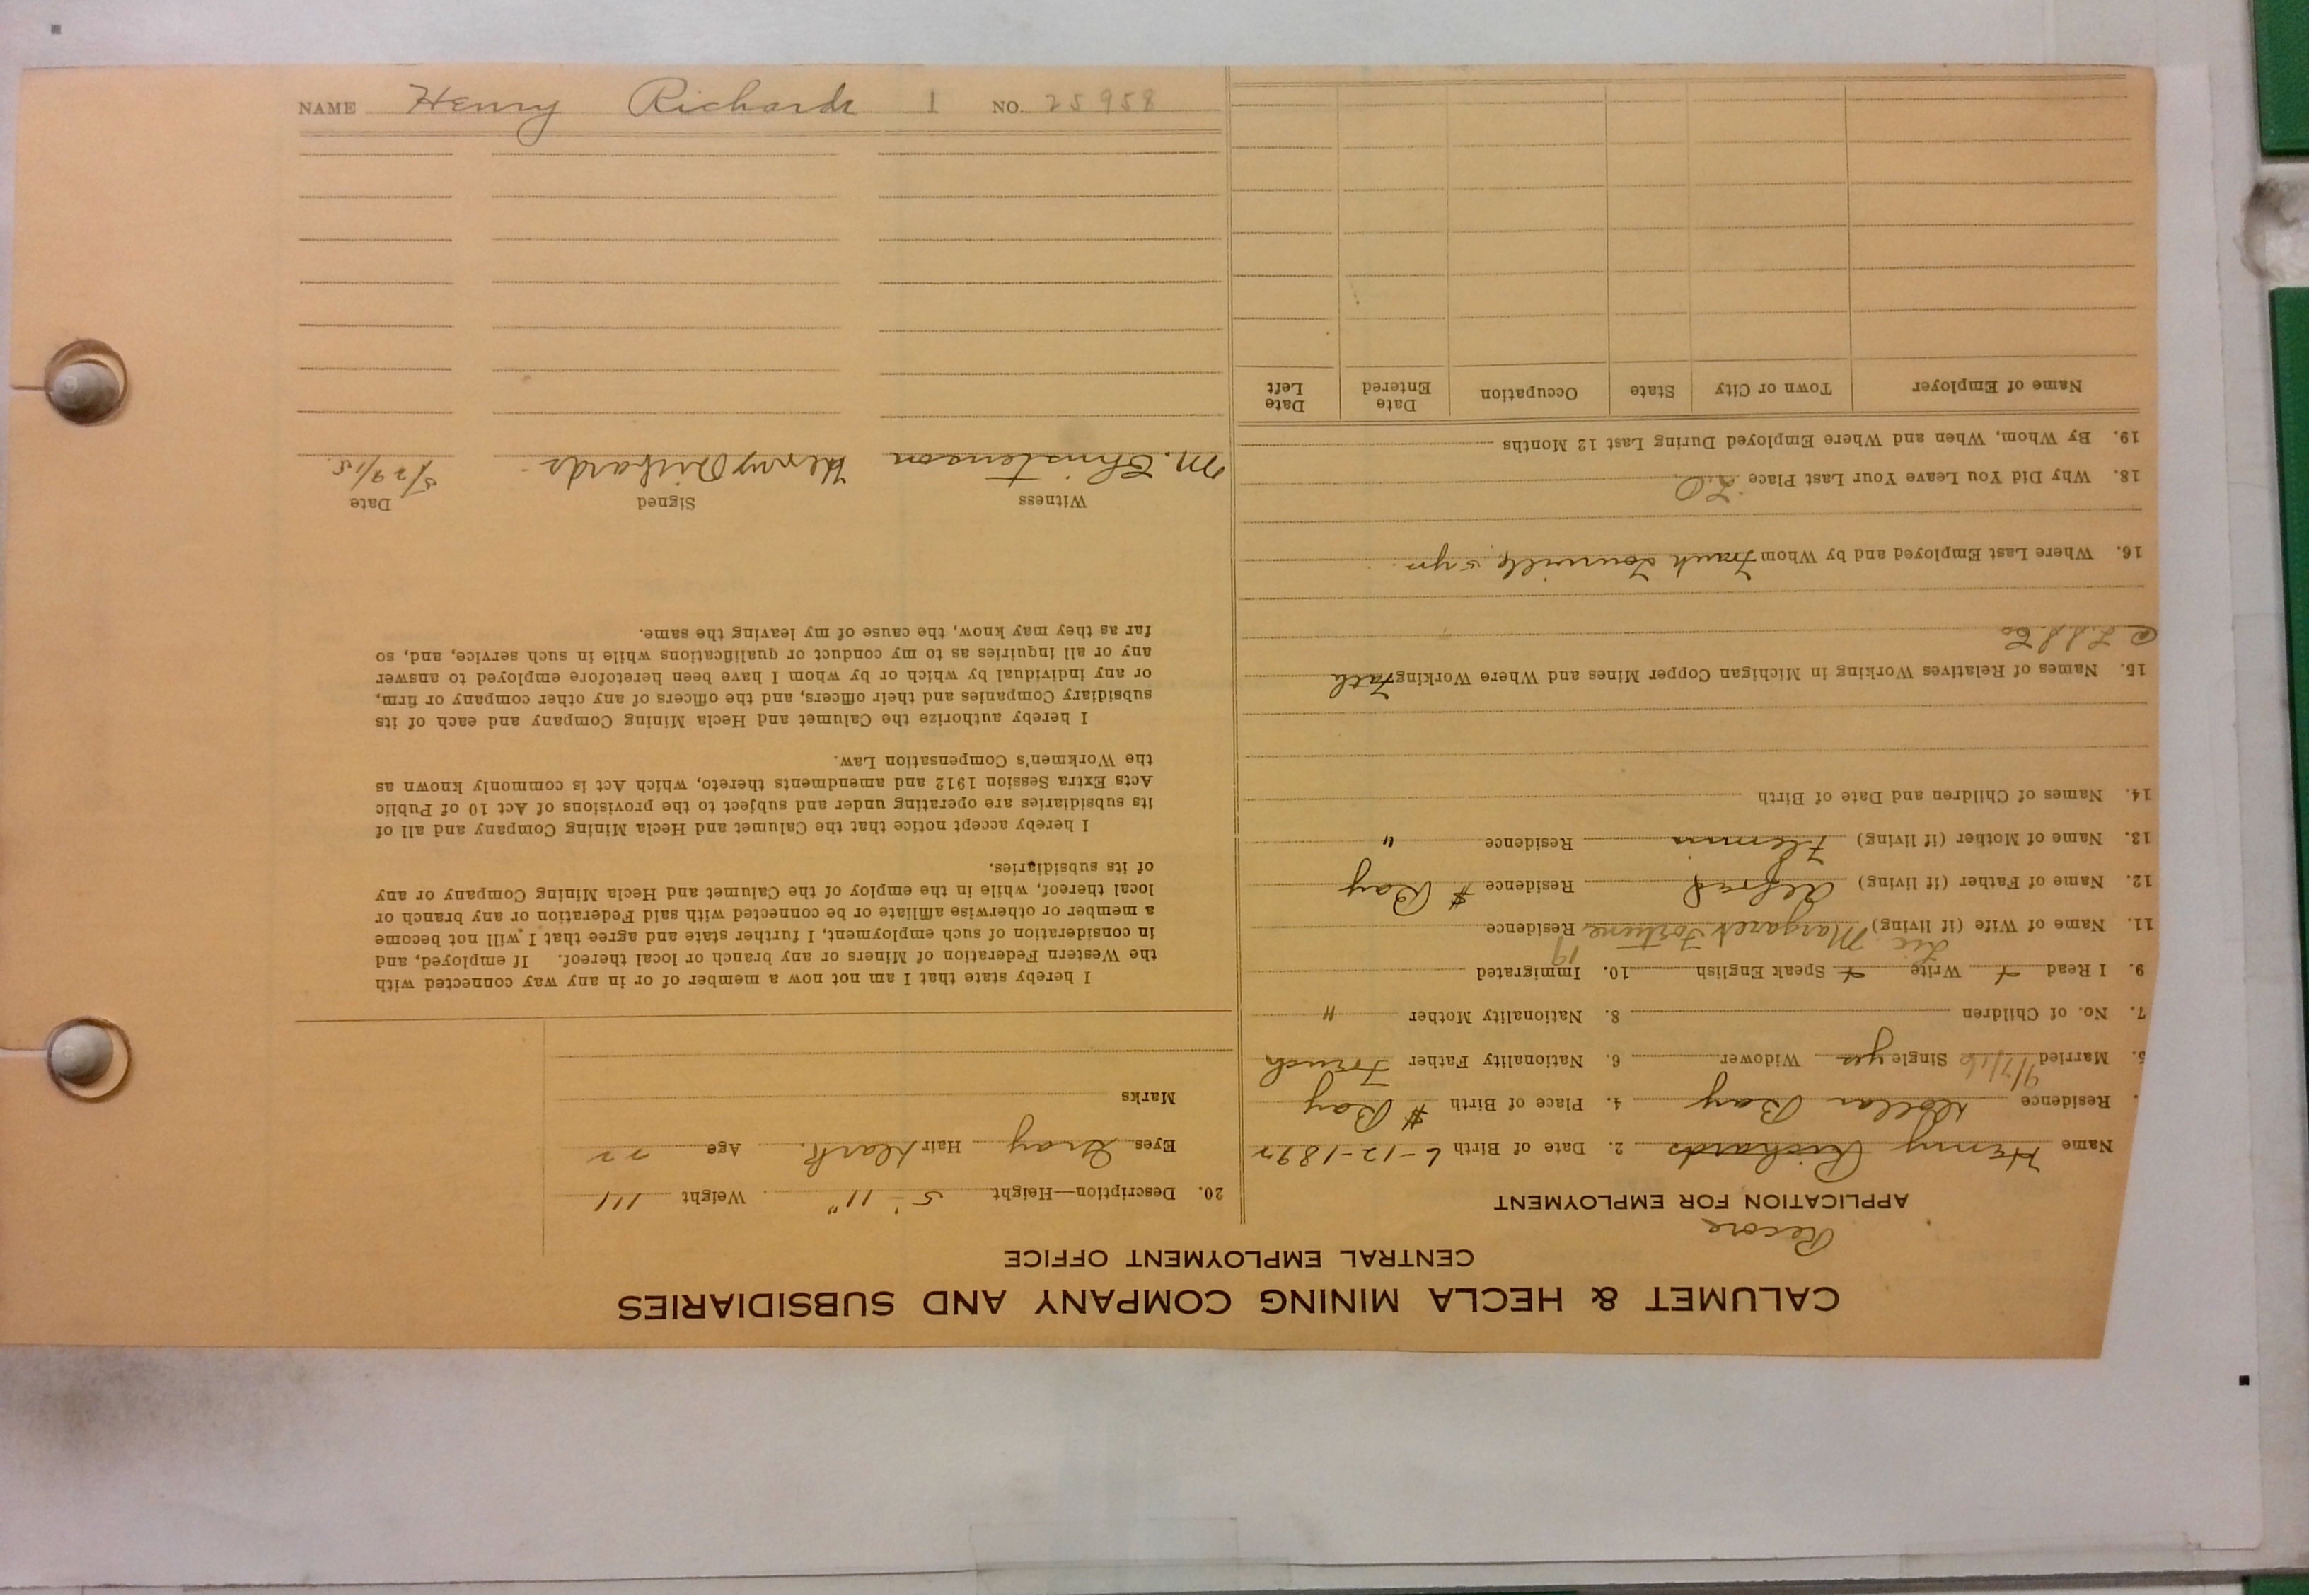 CALUMET & HECLA MINING COMPANY AND SUBSIDIARIES
CENTRAL EMPLOYMENT OFFICE
APPLICATION FOR EMPLOYMENT
Name Henry Richards 2. Date of Birth 6-12-1892
Residence Dollar Bay 4. Place of Birth # Bay
5. Married 9/7/16 Single yes Widower 6. Nationality Father French
7. No. of Children 8. Nationality Mother "
9. I Read Write Speak English 10. Immigrated 19
11. Name of Wife (if living) Margaret Residence
12. Name of Father (if living) Alfred Residence # Bay
13. Name of Mother (if living) Residence "
14. Names of Children and Date of Birth
15. Names of Relatives Working in Michigan Copper Mines and Where Working Fath
16. Where Last Employed and by Whom Frank 5 yrs
18. Why Did You Leave Your Last Place L.O.
19. By Whom, When and Where Employed During Last 12 Months
Name of Employer Town or City State Occupation Date Entered Date Left
20. Description—Height 5' 11" Weight 111
Eyes Gray Hair Dark Age 22
Marks
I hereby state that I am not now a member of or in any way connected with
the Western Federation of Miners or any branch or local thereof. If employed, and
in consideration of such employment, I further state and agree that I will not become
a member or otherwise affiliate or be connected with said Federation or any branch or
local thereof, while in the employ of the Calumet and Hecla Mining Company or any
of its subsidiaries.
I hereby accept notice that the Calumet and Hecla Mining Company and all of
its subsidiaries are operating under and subject to the provisions of Act 10 of Public
Acts Extra Session 1912 and amendments thereto, which Act is commonly known as
the Workmen's Compensation Law.
I hereby authorize the Calumet and Hecla Mining Company and each of its
subsidiary Companies and their officers, and the officers of any other company or firm,
or any individual by which or by whom I have been heretofore employed to answer
any or all inquiries as to my conduct or qualifications while in such service, and, so
far as they may know, the cause of my leaving the same.
Witness Signed Date
M. Christenson Henry Richards 5/29/15
NAME Henry Richards 1 NO. 25958